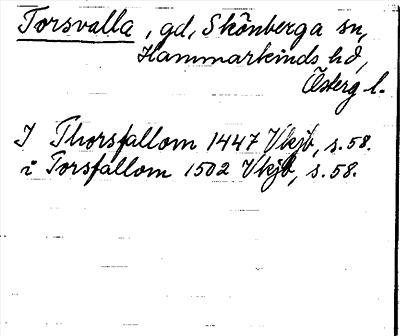 Torsvalla, gd, Skönberga sn,
Hammarkinds hd,
Östergl.
I Thorsfallom 1447 Vkjb, s. 58.
i Torsfallom 1502 Vkjb, s. 58.